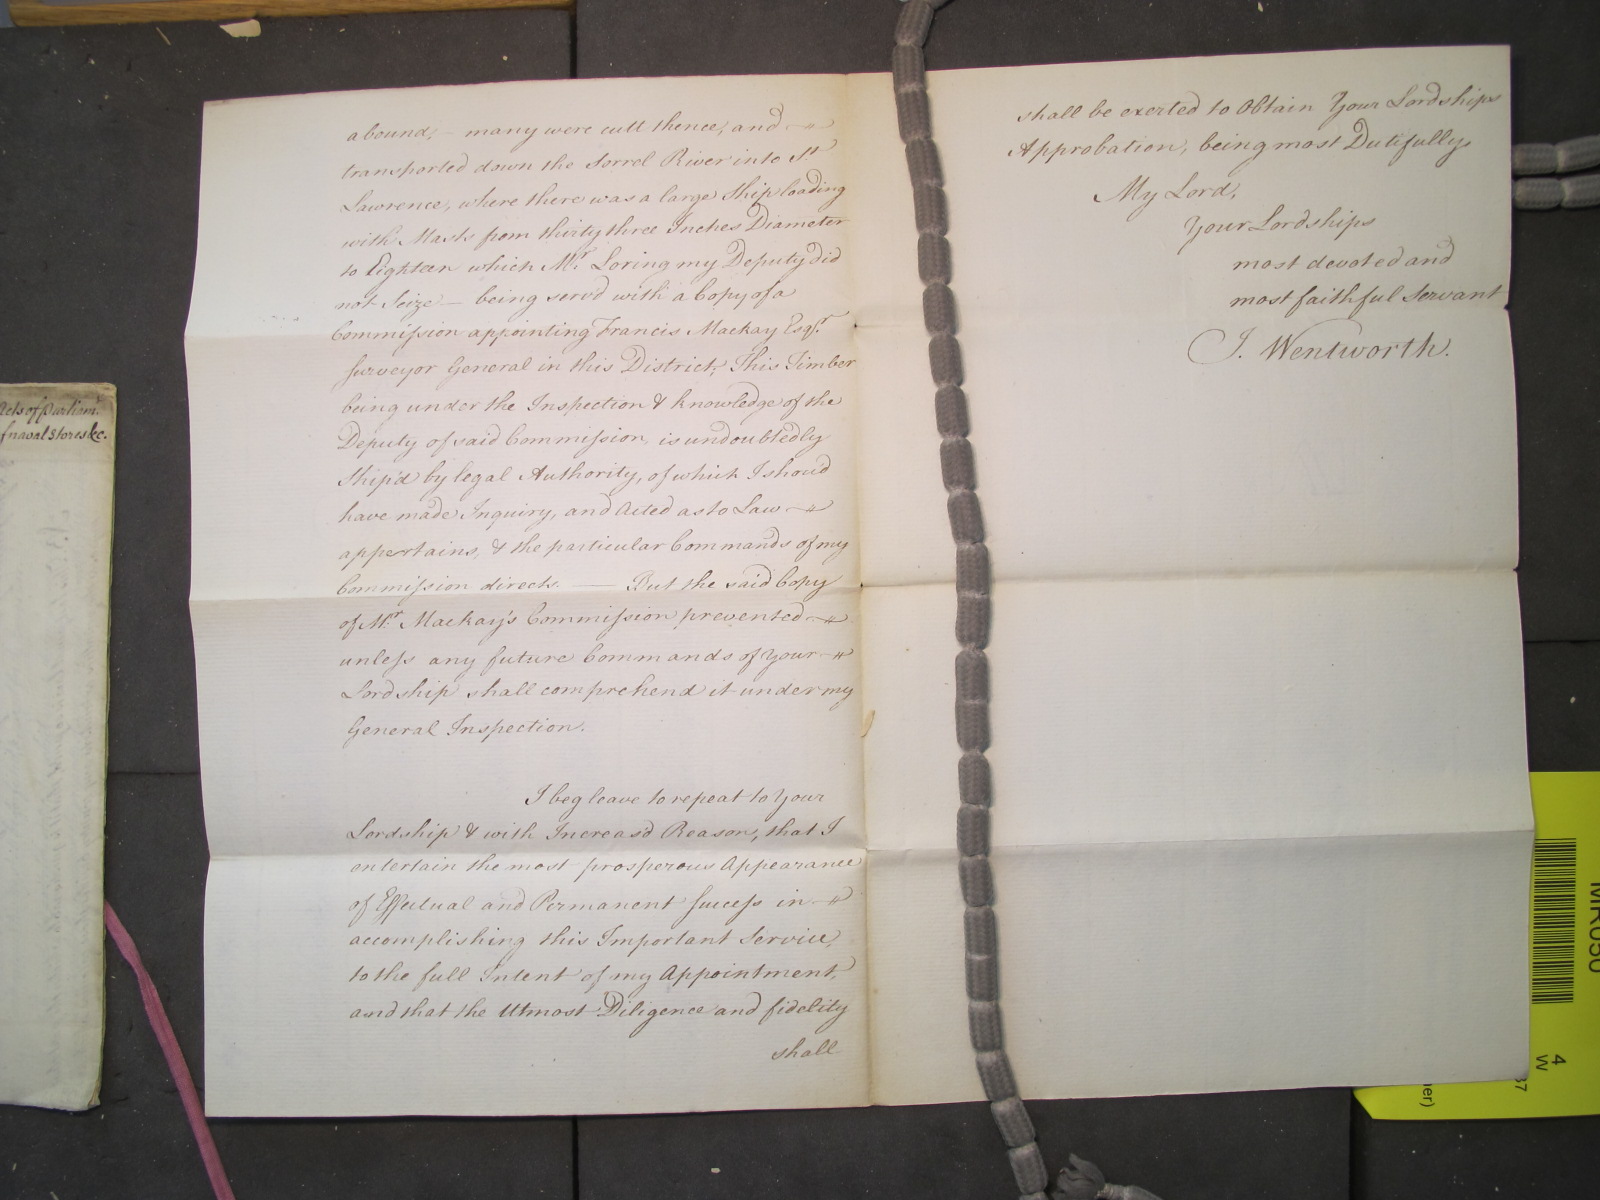 abound, – many were cutt thence, and
transported down the Sorrel River into St
Lawrence, where there was a large Ship loading
with Masts from thirty three Inches Diameter
to Eighteen which Mr. Loring my Deputy did
not Seize – being serv'd with a Copy of a
Commission appointing Francis Mackay Esqr.
Surveyor General in this District, This Timber
being under the Inspection & knowledge of the
Deputy of said Commission, is undoubtedly
Ship'd by legal Authority, of which I shou'd
have made Inquiry, and Acted as to Law
appertains, & the particular Commands of my
Commission directs. — But the said Copy
of Mr. Mackay's Commission prevented
unless any future Commands of Your
Lordship shall comprehend it under my
General Inspection.
I beg leave to repeat to Your
Lordship & with Increas'd Reason, that I
entertain the most prosperous Appearance
of Effectual and Permanent Success in
accomplishing this Important Service,
to the full Intent of my Appointment,
and that the Utmost Diligence and fidelity
shall
shall be exerted to Obtain Your Lordships
Approbation, being most Dutifully
My Lord,
Your Lordships
most devoted and
most faithful Servant
J. Wentworth.
Acts of Parliamt.
f naval Stores &c.
MR050
4
W
37
er)